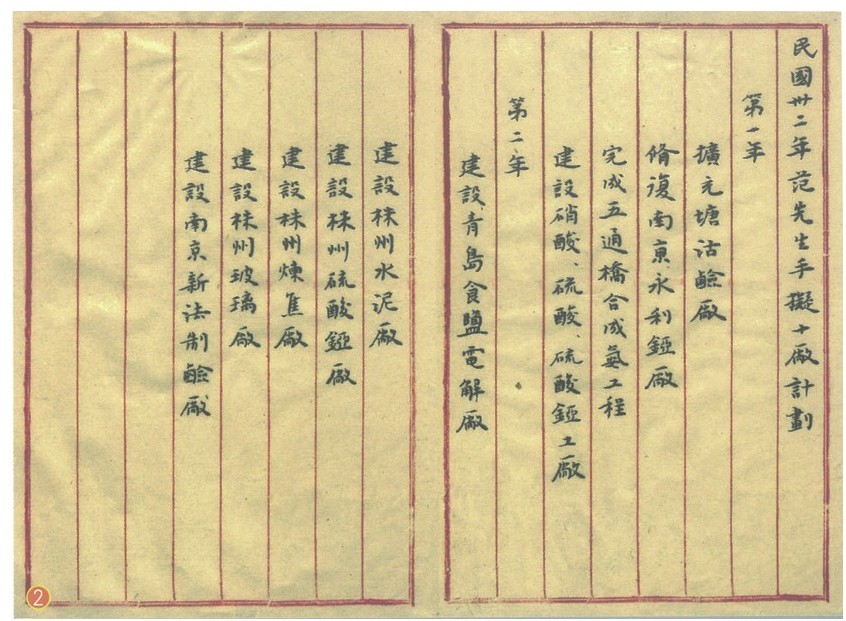 民國卅二年范先生手擬十廠計劃
第一年
擴充塘沽鹼廠
脩復南京永利錏廠
完成五通橋合成氨工程
建設硝酸、硫酸、硫酸錏工廠
第二年
建設青島食鹽電解廠
建設株州水泥廠
建設株州硫酸錏廠
建設株州煉焦廠
建設株州玻璃廠
建設南京新法制鹼廠
2